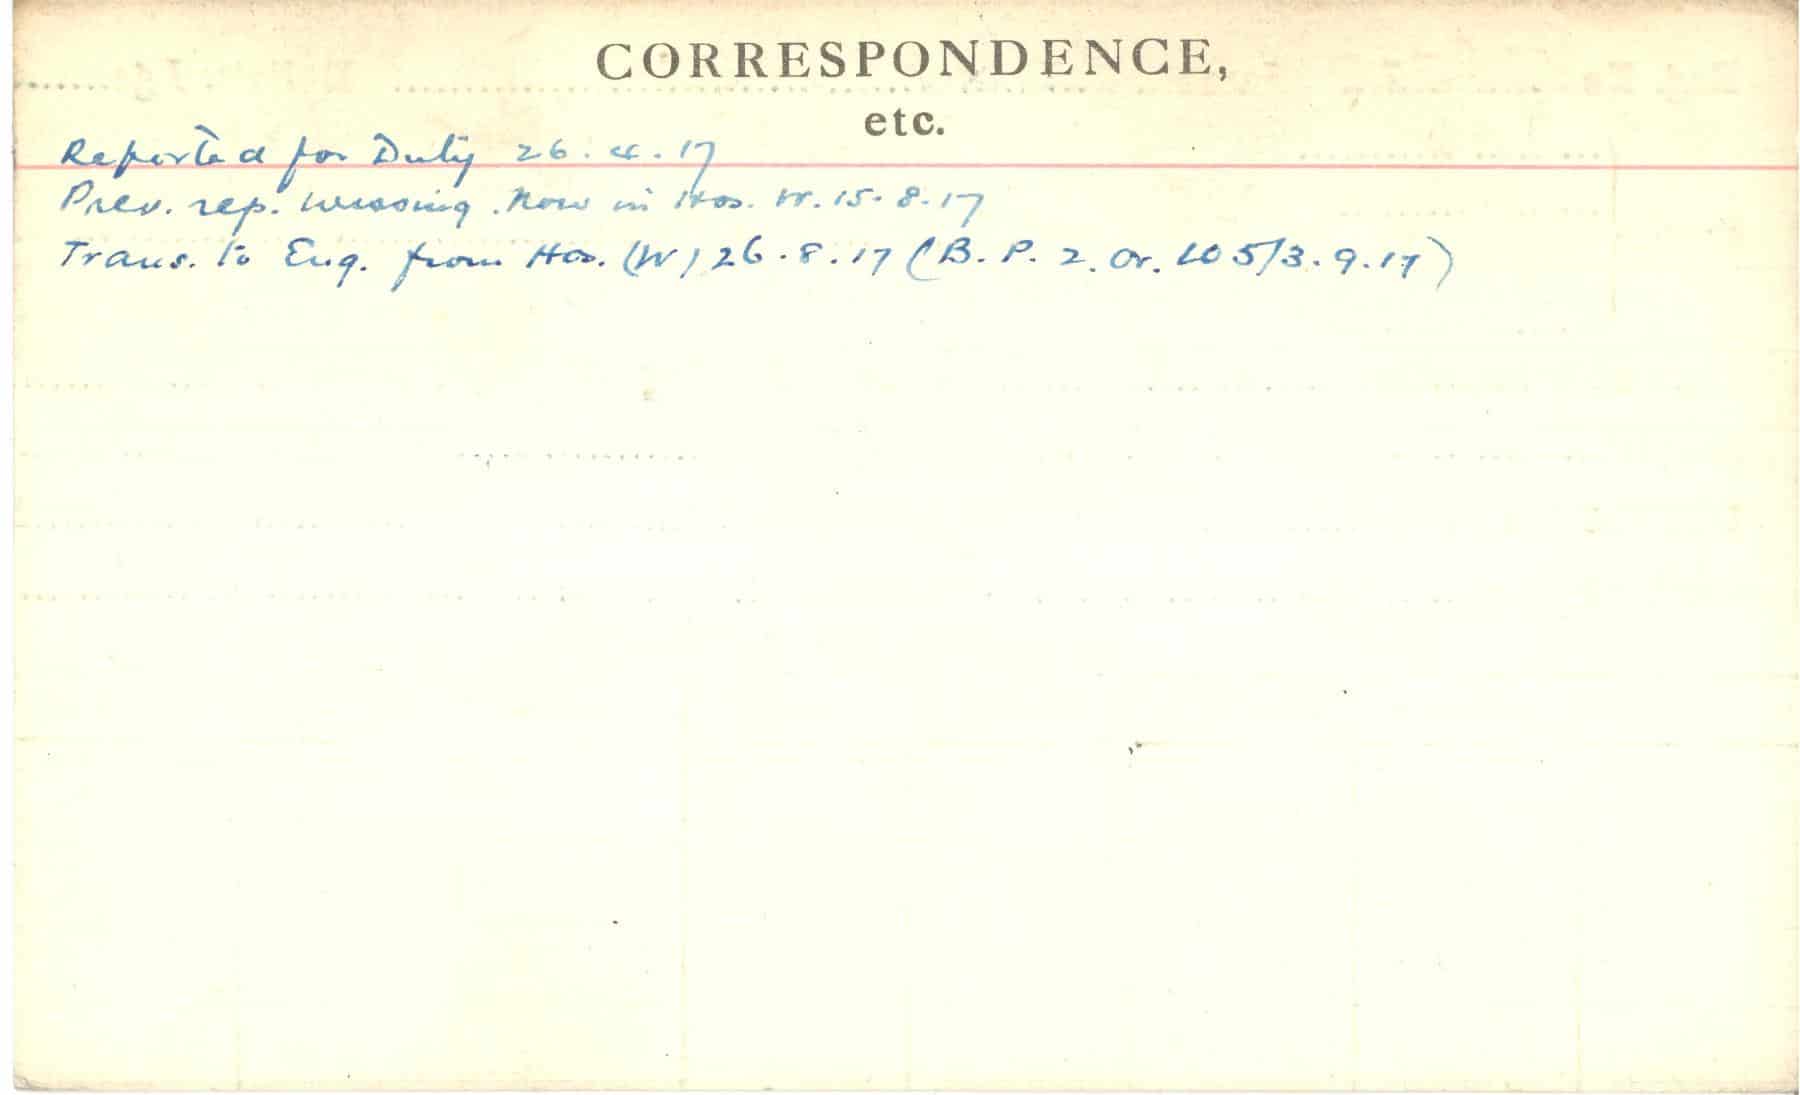 CORRESPONDENCE,
etc.
Reported for Duty 26.4.17
Prev. rep. missing. Now in Hos. W. 15.8.17
Trans. to Eng. from Hos. (W) 26.8.17 (B.P. 2. Or. 105/3.9.17)